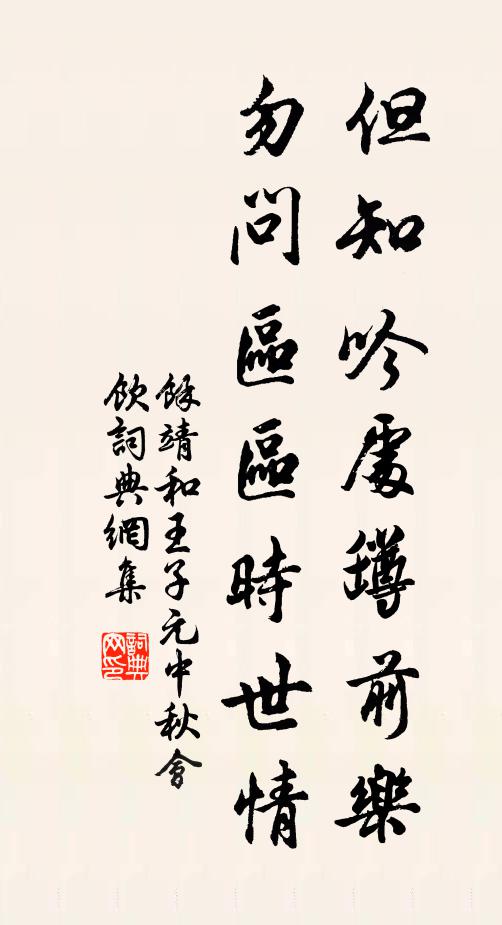 但知吟處罇前樂
勿問區區時世情
餘靖和王子元中秋會
飲詞典網集
詞典网印